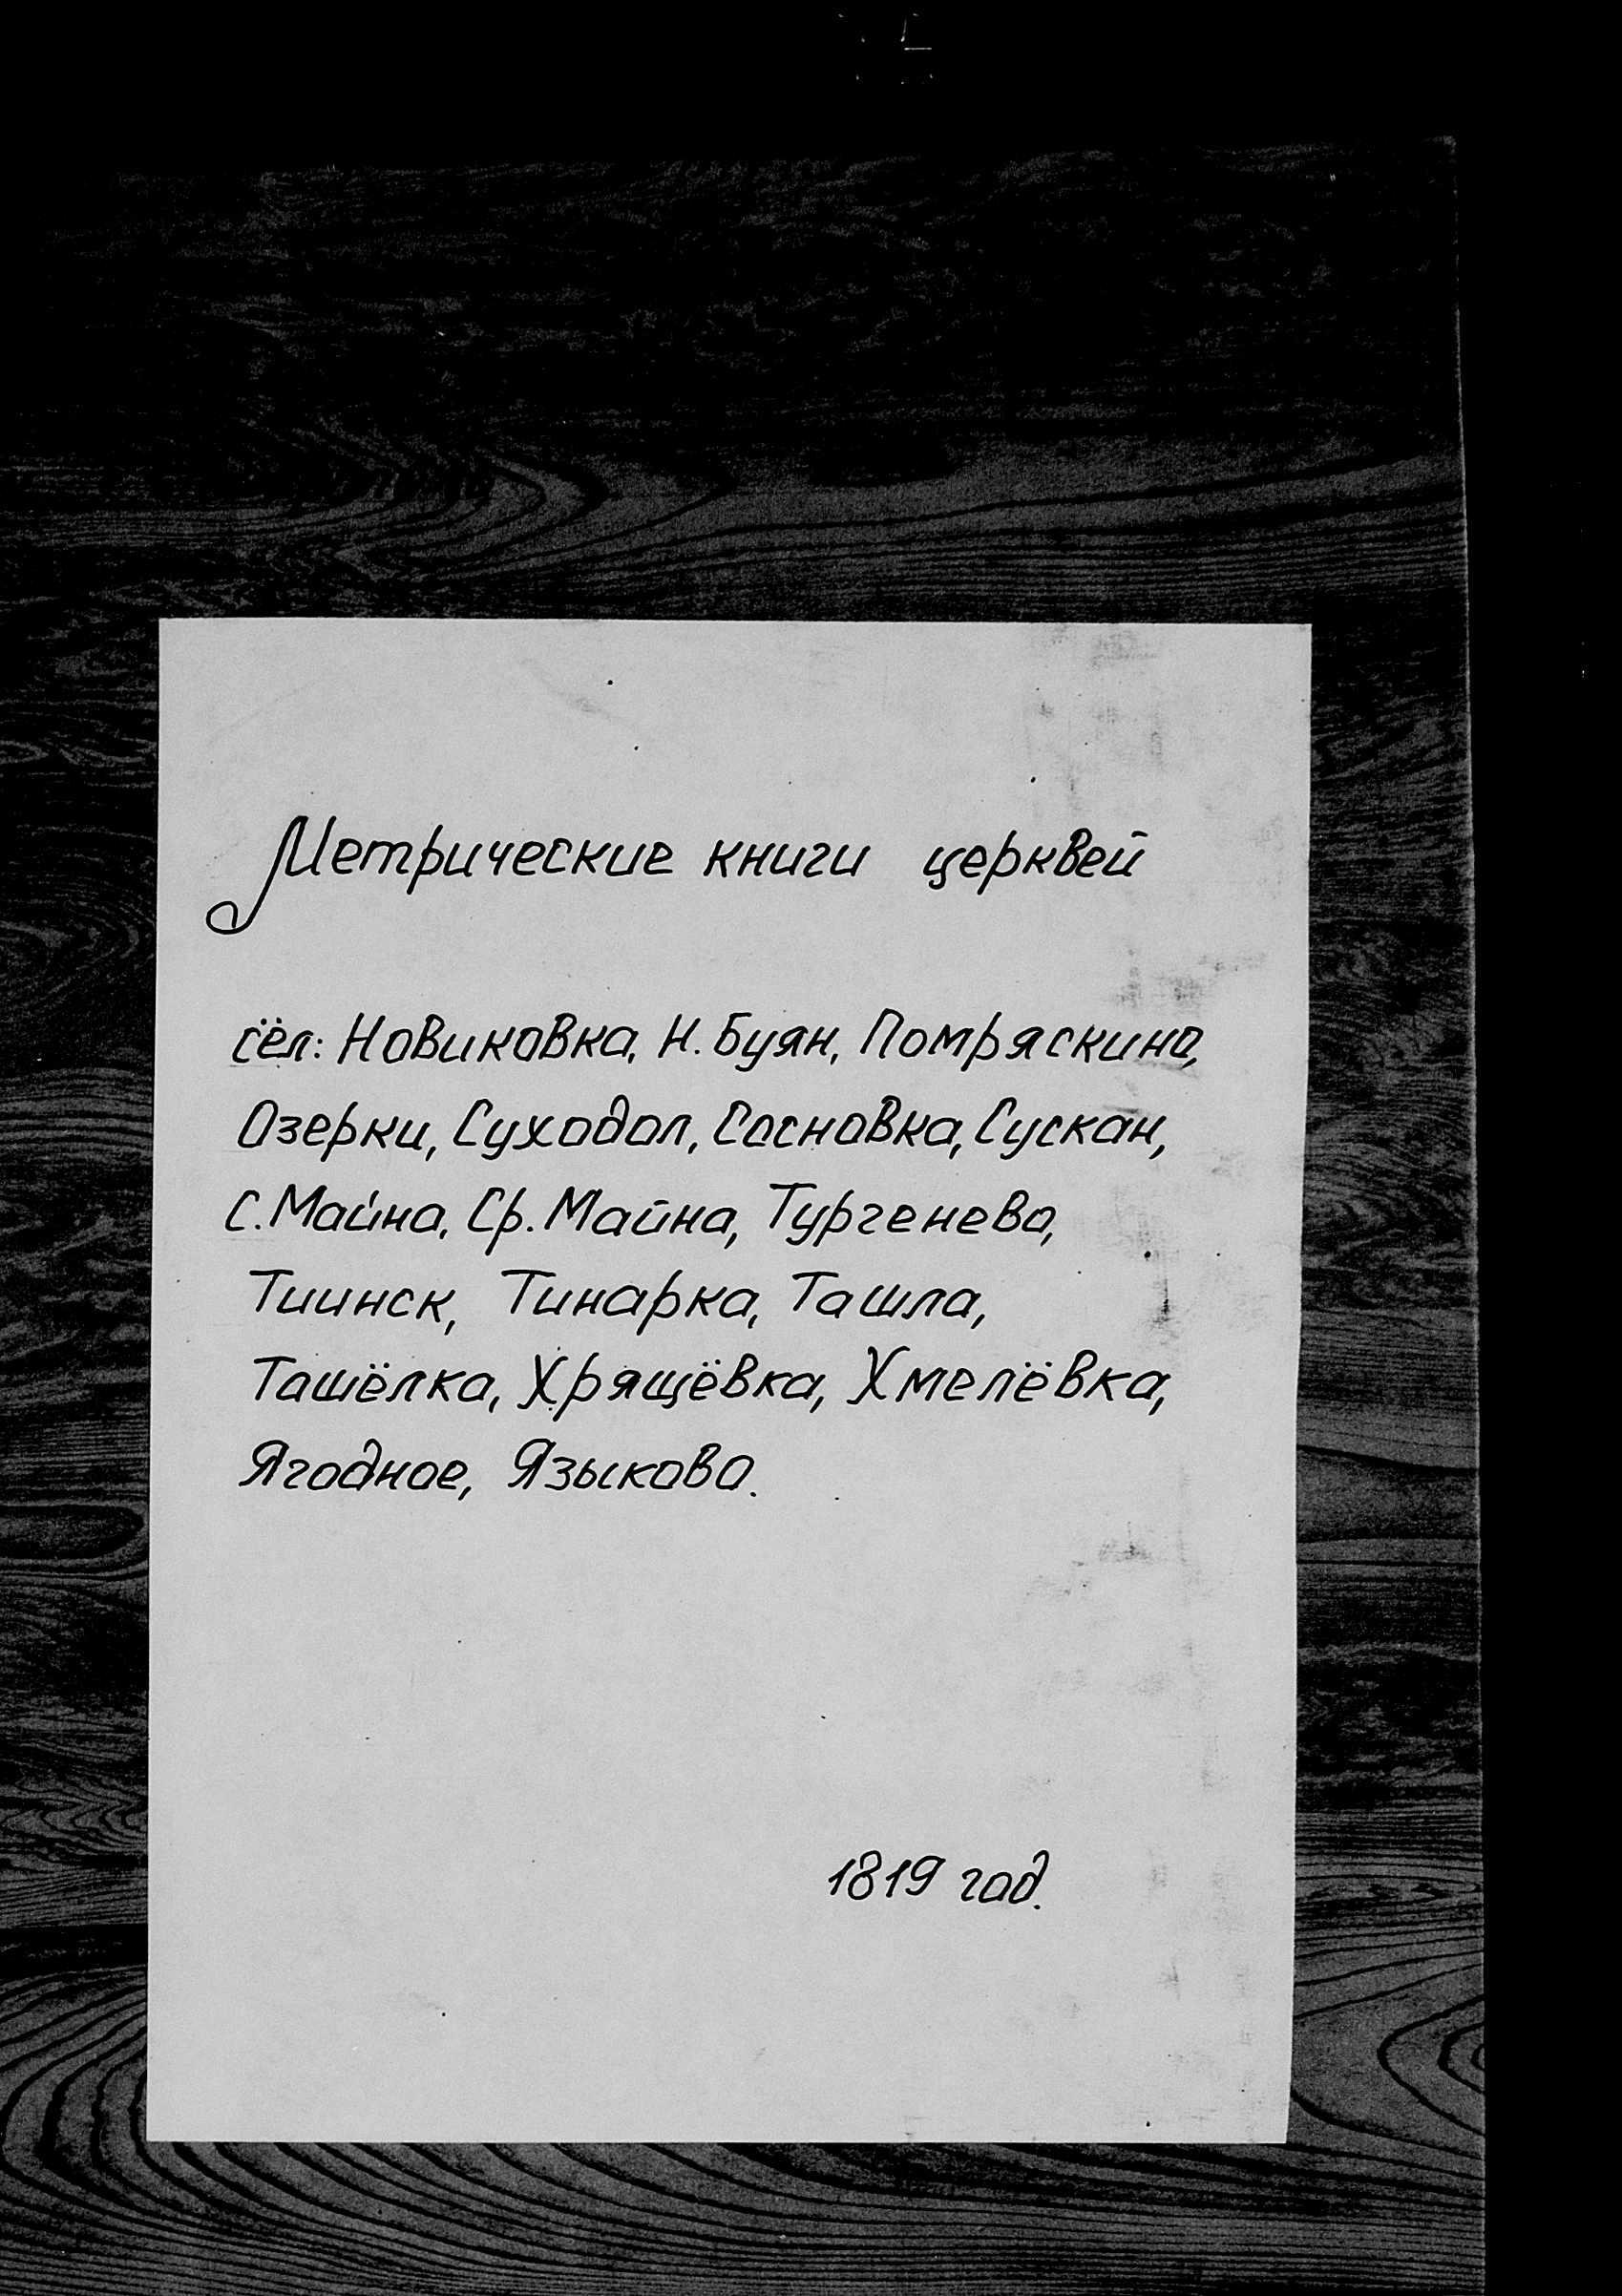 Метрические книги церквей
сёл: Новиковка, Н. Буян, Помряскино,
Озерки, Суходол, Сосновка, Сускан,
С. Майна, Ср. Майна, Тургенево,
Тиинск, Тинарка, Ташла,
Ташёлка, Хрящёвка, Хмелёвка,
Ягодное, Языково.
1819 год.